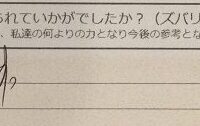 られていかがでしたか？（ズバリ
、私達の何よりの力となり今後の参考とな